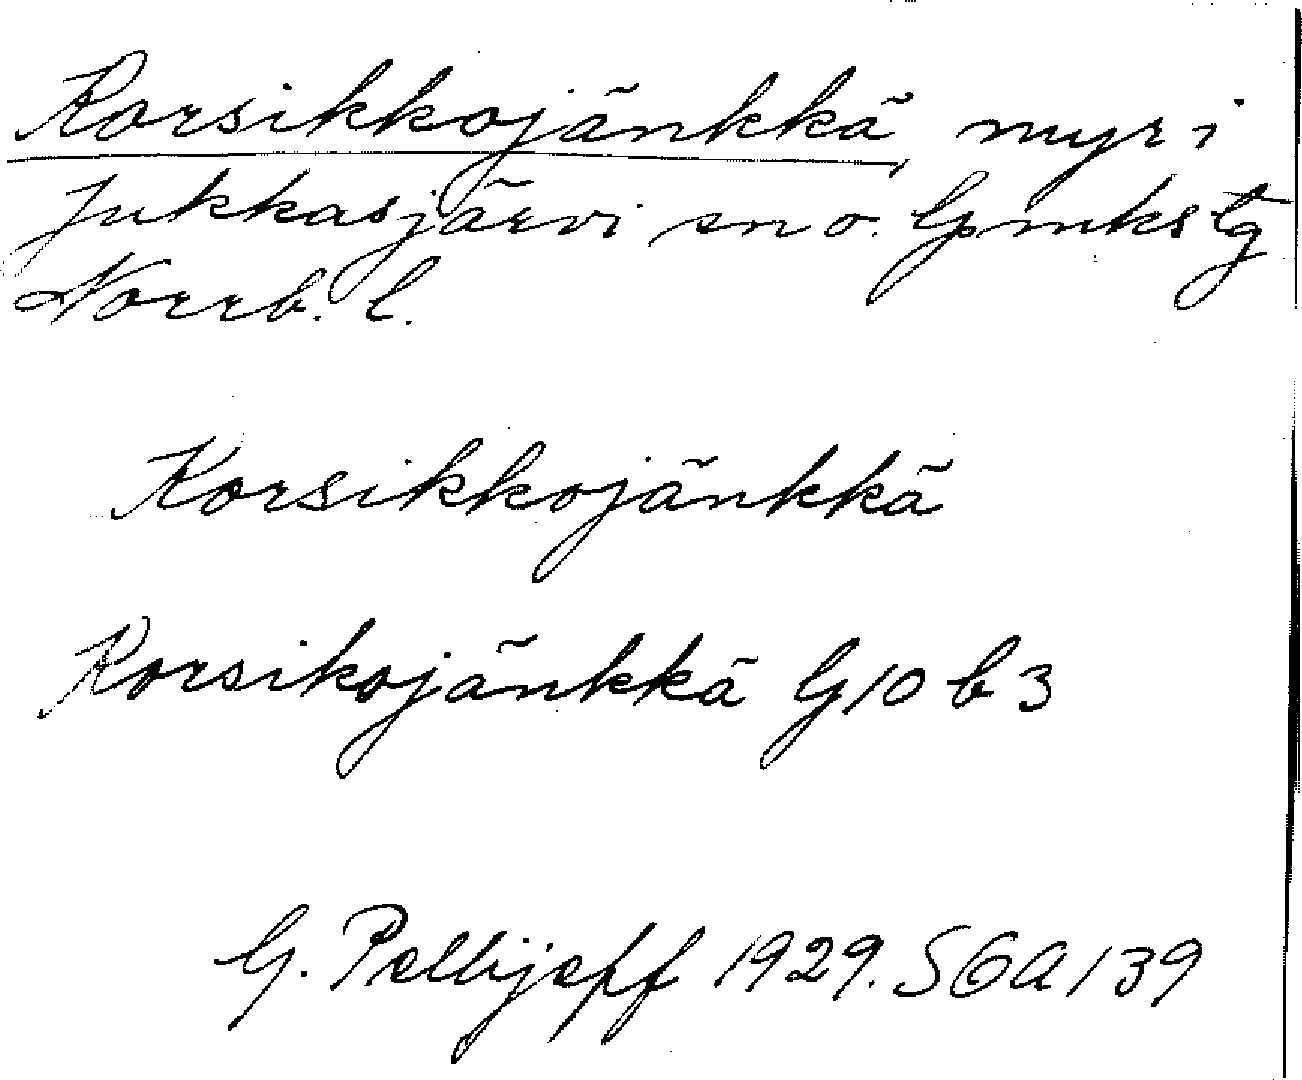 Korsikkojänkkä, myr i
Jukkasjärvi sn o. Gpmkstg
Norrb. l.
Korsikkojänkkä
Korsikojänkkä G10 b 3
G. Pellijeff 1929. SOA 139